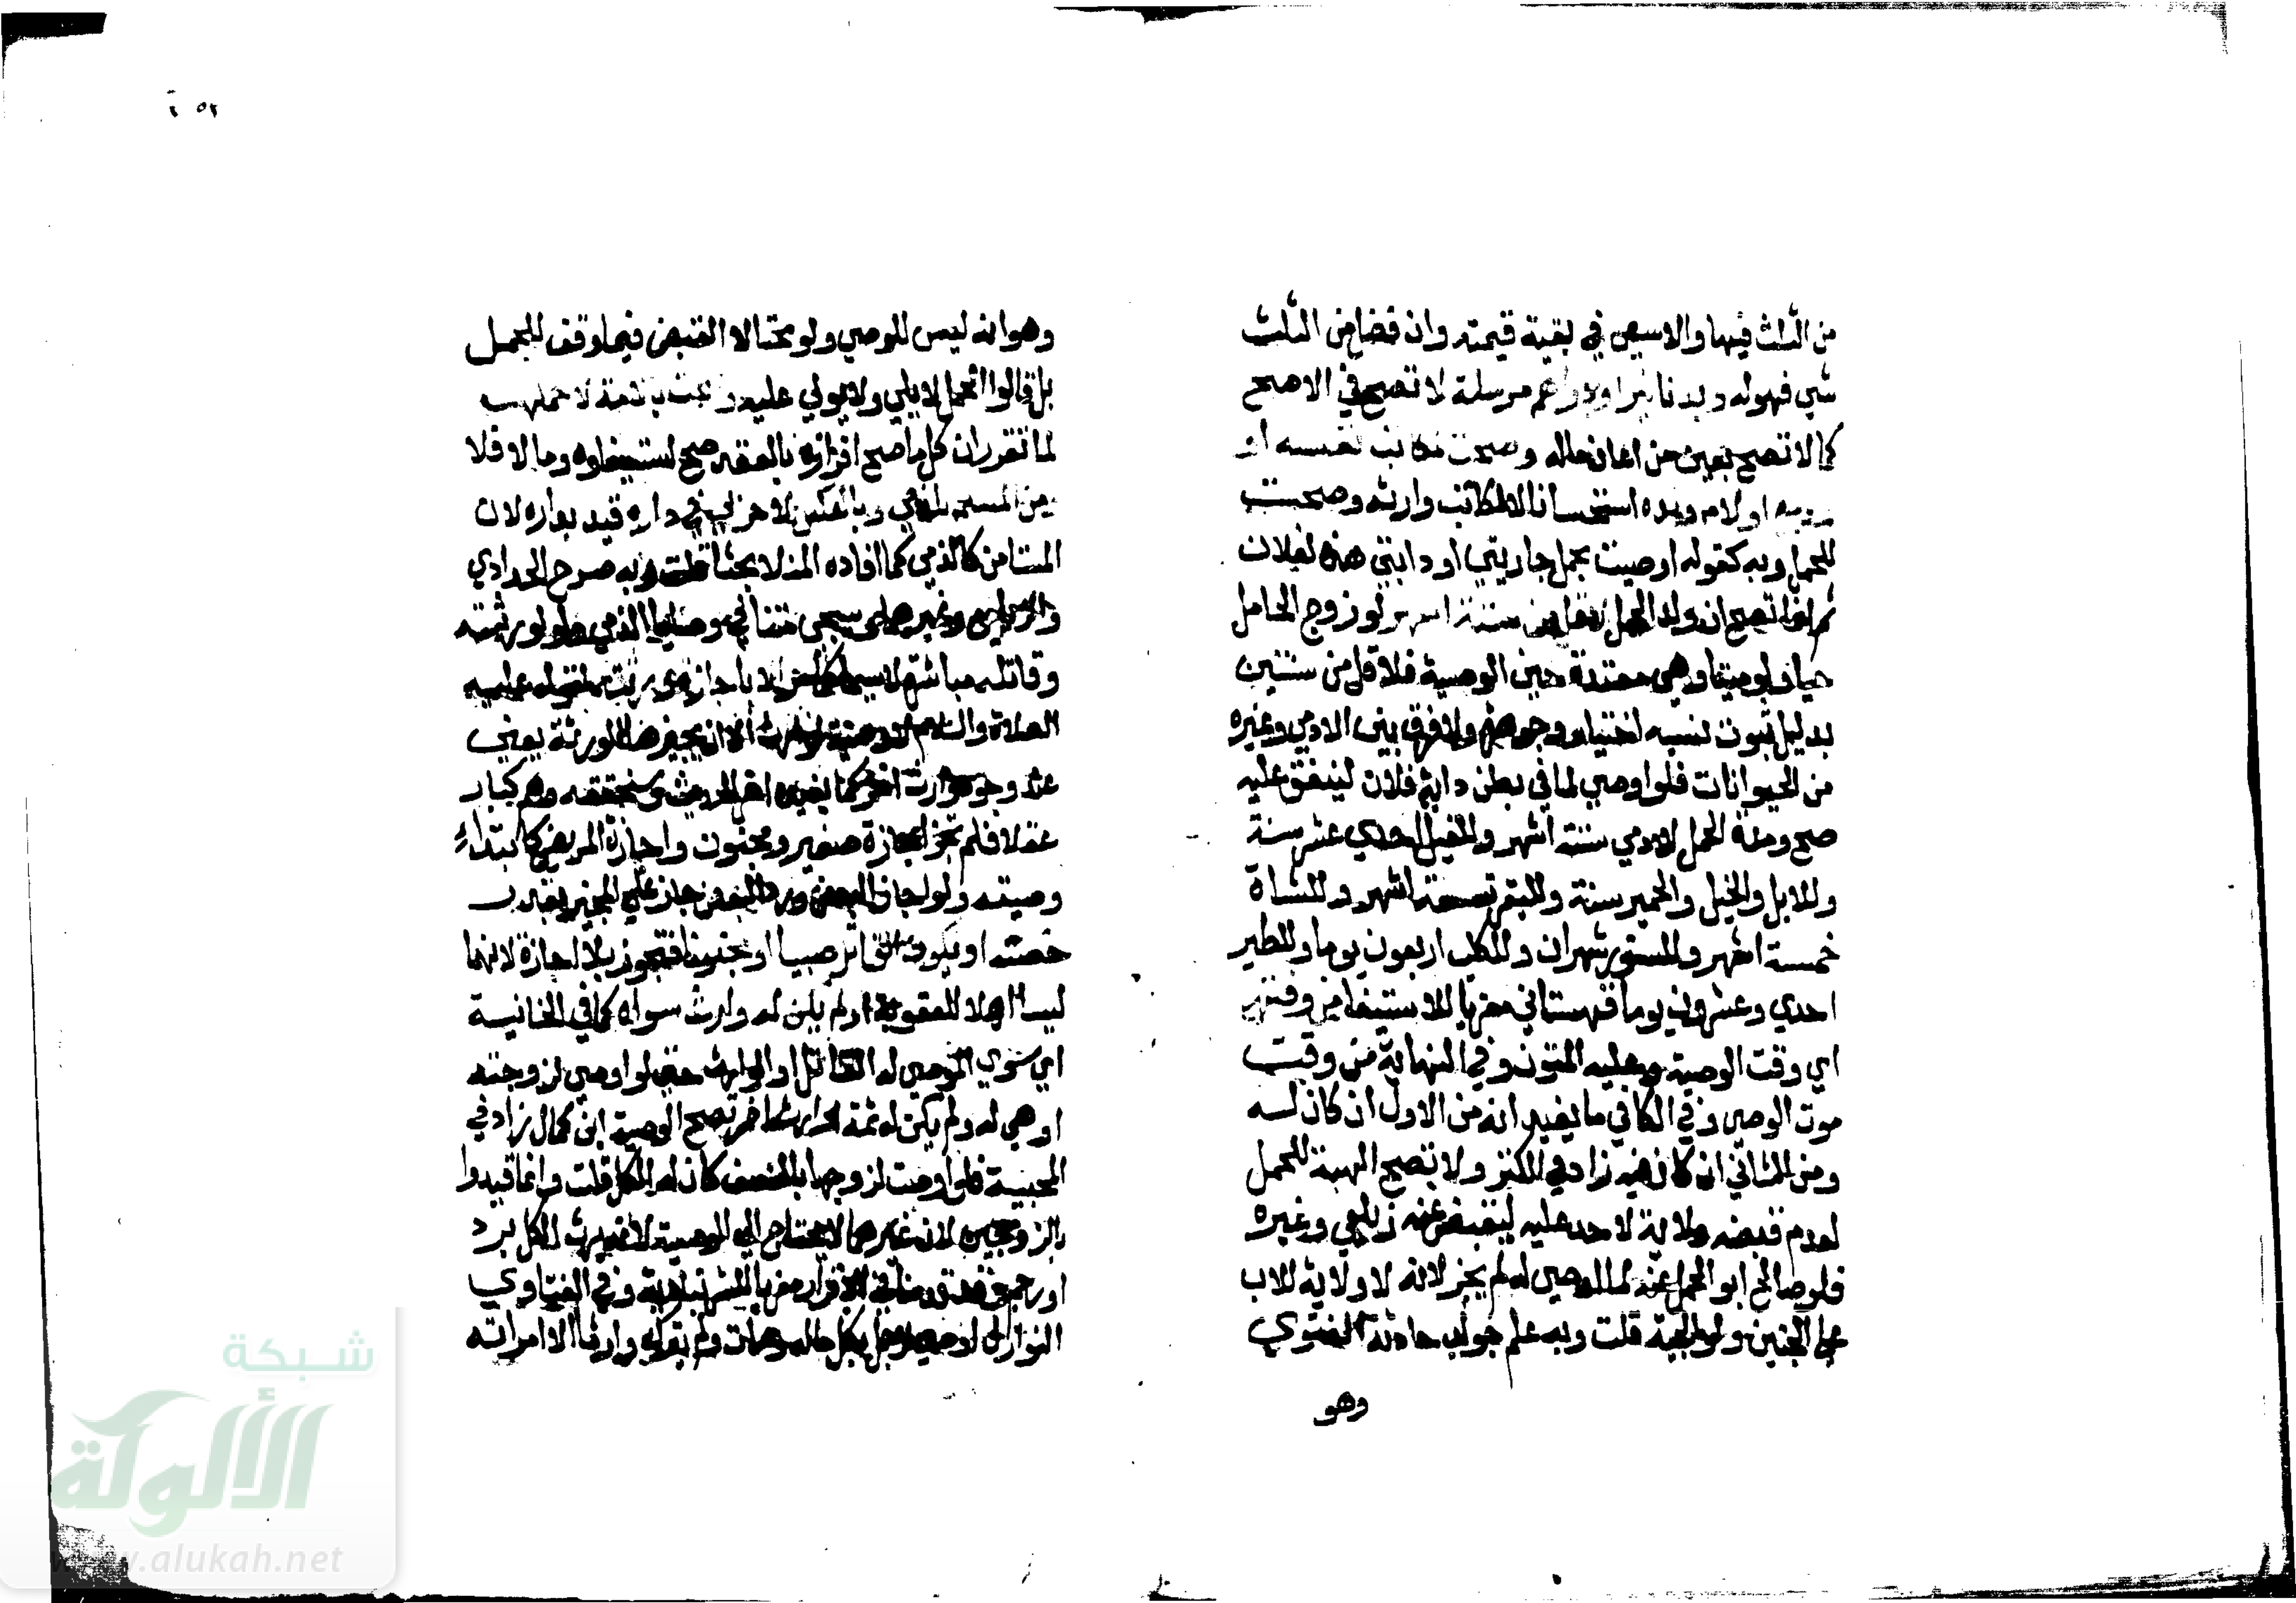 من الثلث فيها والا سعى في بقية قيمته وان فضل من الثلث
شي فهو له وبدنانير او دراهم مرسلة لا تصح في الاصح
كما لا تصح بعين من اعيان ماله وصحت لمكاتب نفسه او
مدبره او لام ولده استحسانا لا لمكاتب وارثه وصحت
للحمل وبه كقوله اوصيت بحمل جاريتي او دابتي هذه لفلان
ثم انما تصح ان ولد الحمل لاقل من ستة اشهر لو زوج الحامل
حيا ولو ميتا وهي معتدة حين الوصية فلاقل من سنتين
بدليل ثبوت نسبه اختيار وجوهرة ولا فرق بين الادمي وغيره
من الحيوانات فلو اوصي لما في بطن دابة فلان لينفق عليه
صح ومدة الحمل للادمي ستة اشهر وللفيل احدي عشر سنة
وللابل والخيل والحمير سنة وللبقر تسعة اشهر وللشاة
خمسة اشهر وللسنور شهران وللكلب اربعون يوما وللطير
احدي وعشرون يوما قهستاني معزيا للاستيفا من وقتها
اي وقت الوصية وعليه المتون وفي النهاية من وقت
موت الوصي وفي الكافي ما يفيد انه من الاول ان كان له
ومن الثاني ان كان به زاد في الكنز ولا تصح الهبة للحمل
لعدم قبضه ولا ية لاحد عليه ليقبض عنه زيلعي وغيره
فلو صالح ابو الحمل عنه لما اوصي له لم يجز لانه لا ولاية للاب
علي الجنين ولوالجية قلت وبه علم جواب حادثة الفتوي
وهو
وهو انه ليس للوصي ولو مختالا القبض فيما وقف للحمل
بل قالوا الحمل لا يلي ولا يولي عليه وصحت بالامة الا حملها
لما تقرر ان كل ما صح افراده بالعقد صح استثناوه وما لا فلا
ومن المسلم للذمي وبالعكس لا حربي في داره قيد بداره لان
المستامن كالذمي كما افاده المنلا بحثا قلت وبه صرح الحدادي
والزيلعي وغيرهما وسيجي متنا في وصايا الذمي ولا لوارثه
وقاتله مباشرة لا تسببا كما مر الا باجازة ورثته لقوله عليه
الصلاة والسلام لا وصية لوارث الا ان يجيزها الورثة يعني
عند وجود وارث اخر كما يفيده اخر الحديث وسنحققه وهم كبار
عقلا فلم تجز اجازة صغير ومجنون واجازة المريض كابتداء
وصيته ولو اجاز البعض ورد البعض جاز علي المجيز بقدر
حصته او يكون القاتل صبيا او مجنونا فتجوز بلا اجازة لانهما
ليسا اهلا للعقوبة او لم يكن له وارث سواه كما في الخانية
اي سوي الموصي له القاتل او الوارث حتي لو اوصي لزوجته
او هي له ولم يكن له ثمة وارث اخر تصح الوصية ابن كمال زاد في
المحبية فلو اوصت لزوجها بالنصف كان له الكل قلت وانما قيدوا
بالزوجين لان غيرهما لا يحتاج الي الوصية لانه يرث الكل برد
او رحم وقد قدمناه في الاقرار معزيا للشرنبلالية وفي الفتاوي
النوازل اوصي لرجل بكل ماله ومات ولم يترك وارثا الا امراته